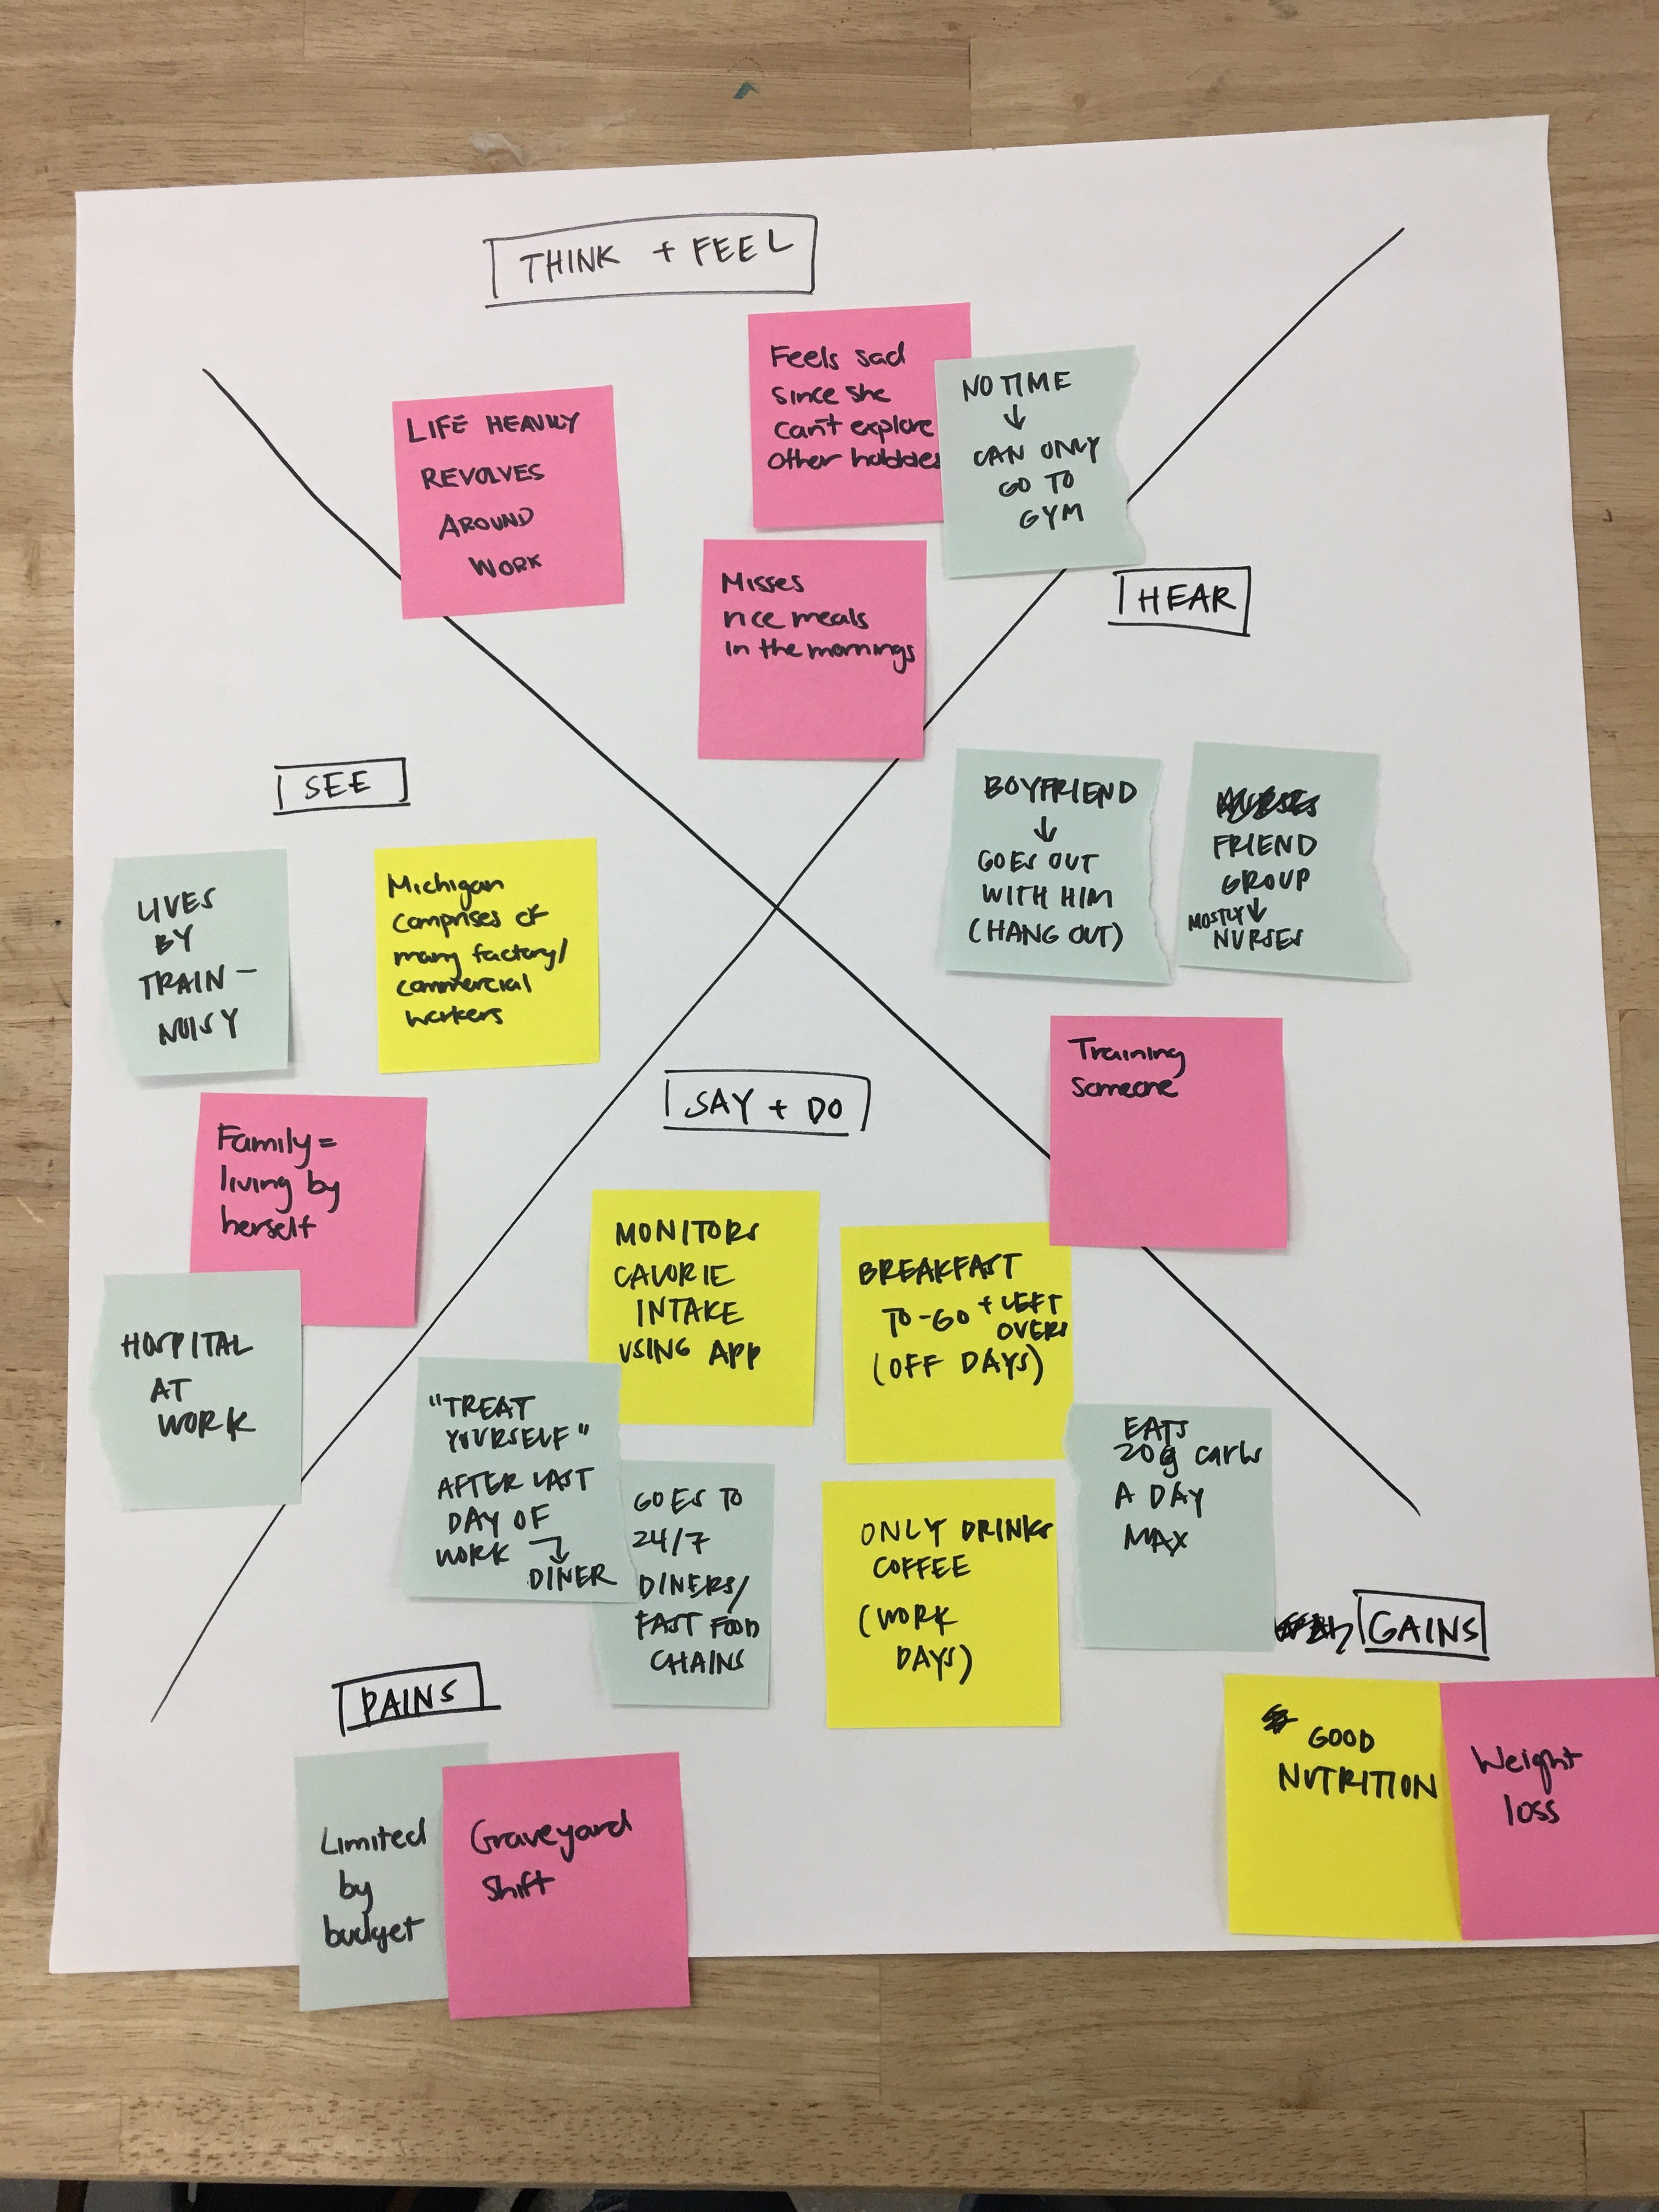 THINK + FEEL
LIFE HEAVILY
REVOLVES
AROUND
WORK
Feels sad
since she
can't explore
other hobbies
NO TIME
↓
CAN ONLY
GO TO
GYM
Misses
nice meals
in the mornings
HEAR
BOYFRIEND
↓
GOES OUT
WITH HIM
(HANG OUT)
FRIEND
GROUP
MOSTLY ↓
NURSES
Training
someone
SEE
LIVES
BY
TRAIN –
NOISY
Michigan
comprises of
many factory/
commercial
workers
Family =
living by
herself
HOSPITAL
AT
WORK
SAY + DO
MONITORS
CALORIE
INTAKE
USING APP
BREAKFAST
TO-GO + LEFT
OVERS
(OFF DAYS)
"TREAT
YOURSELF"
AFTER LAST
DAY OF
WORK ↴
DINER
GOES TO
24/7
DINERS/
FAST FOOD
CHAINS
ONLY DRINKS
COFFEE
(WORK
DAYS)
EATS
20g carbs
A DAY
MAX
PAINS
Limited
by
budget
Graveyard
shift
GAINS
GOOD
NUTRITION
Weight
loss